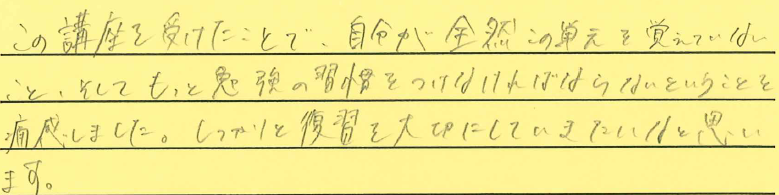 この講座を受けたことで、自分が全然この単元を覚えていない
こと、そしてもっと勉強の習慣をつけなければならないということを
痛感しました。しっかりと復習を大切にしていきたいなと思い
ます。